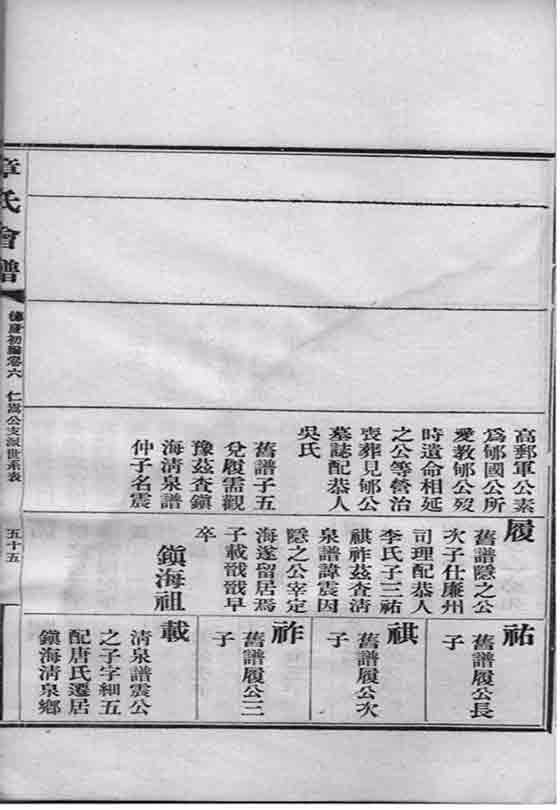 高郵軍公素
爲郇國公所
愛教郇公歿
時遺命相延
之公等營治
喪葬見郇公
墓誌配恭人
吳氏
舊譜子五
兌履需觀
豫茲查鎭
海清泉譜
仲子名震
履
舊譜隱之公
次子仕廉州
司理配恭人
李氏子三祐
祺祚茲查清
泉譜諱震因
隱之公宰定
海遂留居焉
子載戩戩早
卒
鎭海祖
祐
舊譜履公長
子
祺
舊譜履公次
子
祚
舊譜履公三
子
載
清泉譜震公
之子字細五
配唐氏遷居
鎭海清泉鄉
章氏會譜
德慶初編卷六
仁嵩公支派世系表
五十五